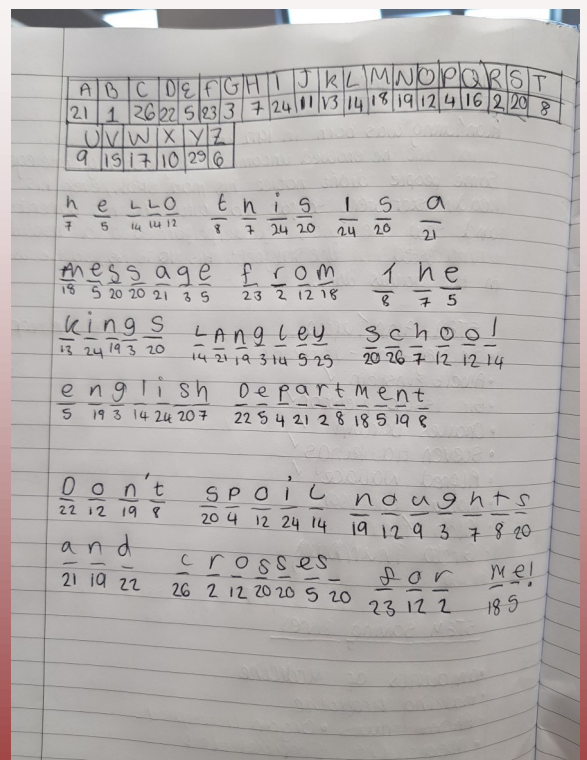 A B C D E F G H I J K L M N O P Q R S T
21 1 26 22 5 23 3 7 24 11 13 14 18 19 12 4 16 2 20 8
U V W X Y Z
9 15 17 10 25 6
he LLO this Is a
7 5 14 14 12 8 7 24 20 24 20 21
message from The
18 5 20 20 21 3 5 23 2 12 18 8 7 5
kings LAngley school
13 24 19 3 20 14 21 19 3 14 5 25 20 26 7 12 12 14
english Department
5 19 3 14 24 20 7 22 5 4 21 2 8 18 5 19 8
Don't spoiL noughts
22 12 19 8 20 4 12 24 14 19 12 9 3 7 8 20
and crosses for me!
21 19 22 26 2 12 20 20 5 20 23 12 2 18 5